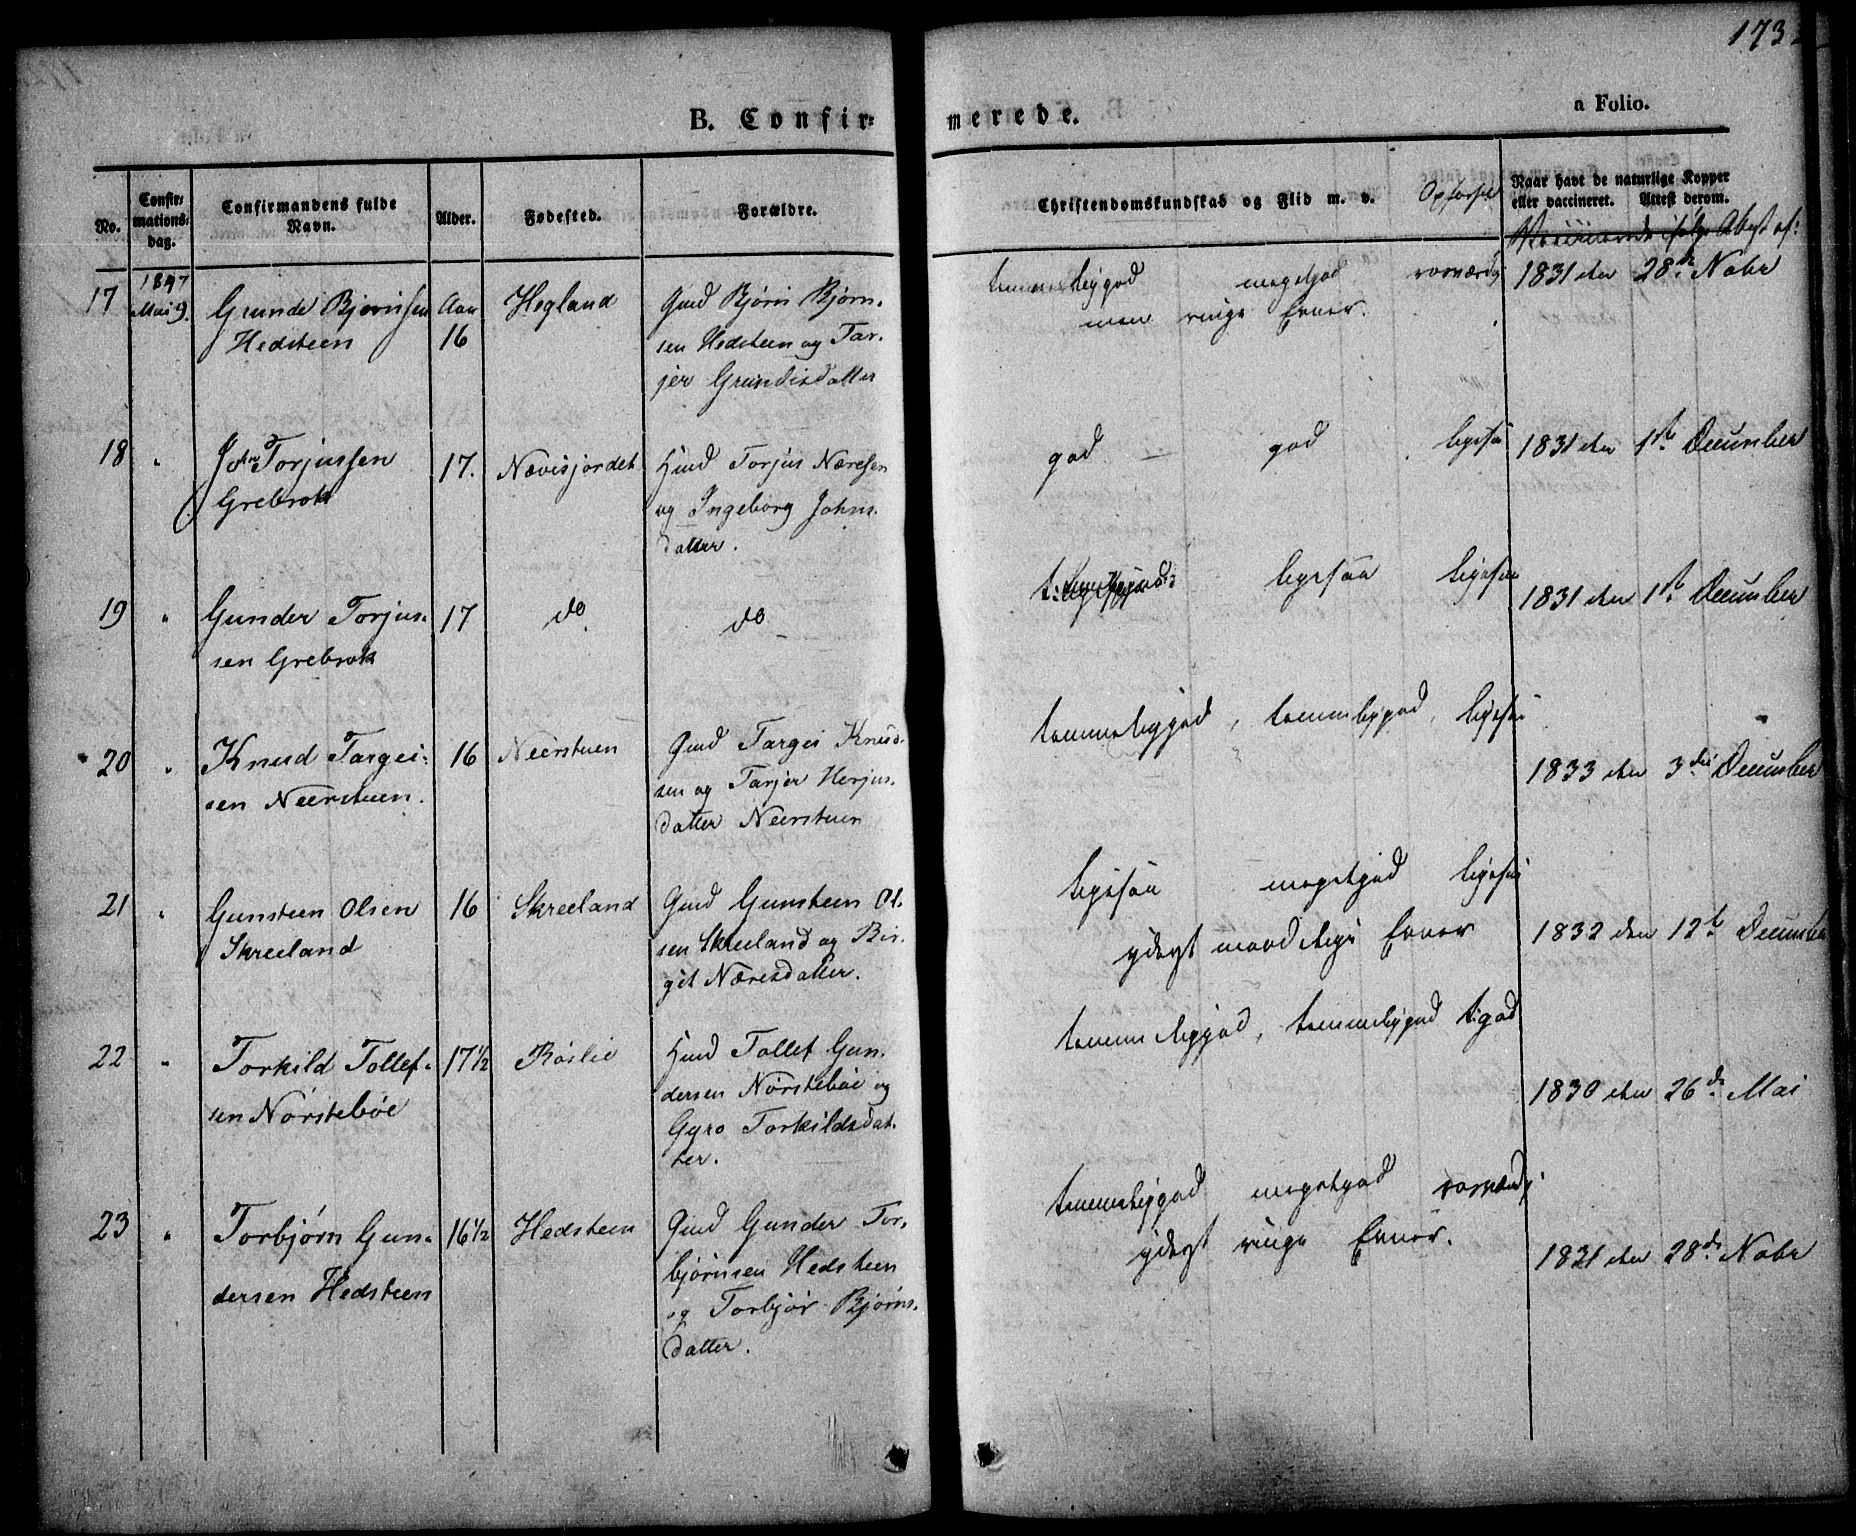 173
B. Confir-
merede.
a Folio.
No.
Confir-
mations-
dag.
Confirmandens fulde
Navn.
Alder.
Fødested.
Forældre.
Christendomskundskab og Flid m. v.
Opførsel
Naar havt de naturlige Kopper
eller vaccineret. Attest derom.
Vaccinerede ifølge Attest af:
17
1847
Mai 9.
Grunde Bjørnsen
Hedsteen
Aar
16
Hegland
Gmd Bjørn Bjørn-
sen Hedsteen og Tar-
jer Grundisdatter
temmeligod megetgod rosværdig
men ringe Evner.
1831 den 28de Nobr
18
"
John Torjussen
Grebrok
17.
Nævisjordet
Hmd Torjus Næresen
og Ingeborg Johns-
datter.
god god ligesaa
1831 den 1ste December
19
"
Gunder Torjus-
sen Grebrok
17
do
do
ligesaa ligesaa
1831 den 1ste December
20
"
Knud Targei-
sen Neerstuen.
16
Neerstuen
Gmd Targei Knud-
sen og Tarjer Herjus-
datter Neerstuen
temmeliggod, temmeliggod, ligesaa
1833 den 3die December
21
"
Gunsteen Olsen
Skreeland
16
Skreeland
Gmd Gunsteen Ol-
sen Skreeland og Bir-
git Næresdatter.
ligesaa megetgod ligesaa
yderst maadelige Evner
1832 den 12te December
22
"
Torkild Tollef-
sen Nörstebøe
17 1/2
Röslie
Hmd Tollef Gun-
dersen Nörstebøe og
Gyro Torkildsdat-
ter.
temmeliggod, temmeliggod t:god
1830 den 26de Mai
23
"
Torbjørn Gun-
dersen Hedsteen
16 1/2
Hedsteen
Gmd Gunder Tor-
bjørnsen Hedsteen
og Torbjør Bjørns-
datter.
temmeliggod megetgod rosværdig
yderst ringe Evner.
1831 den 28de Nobr